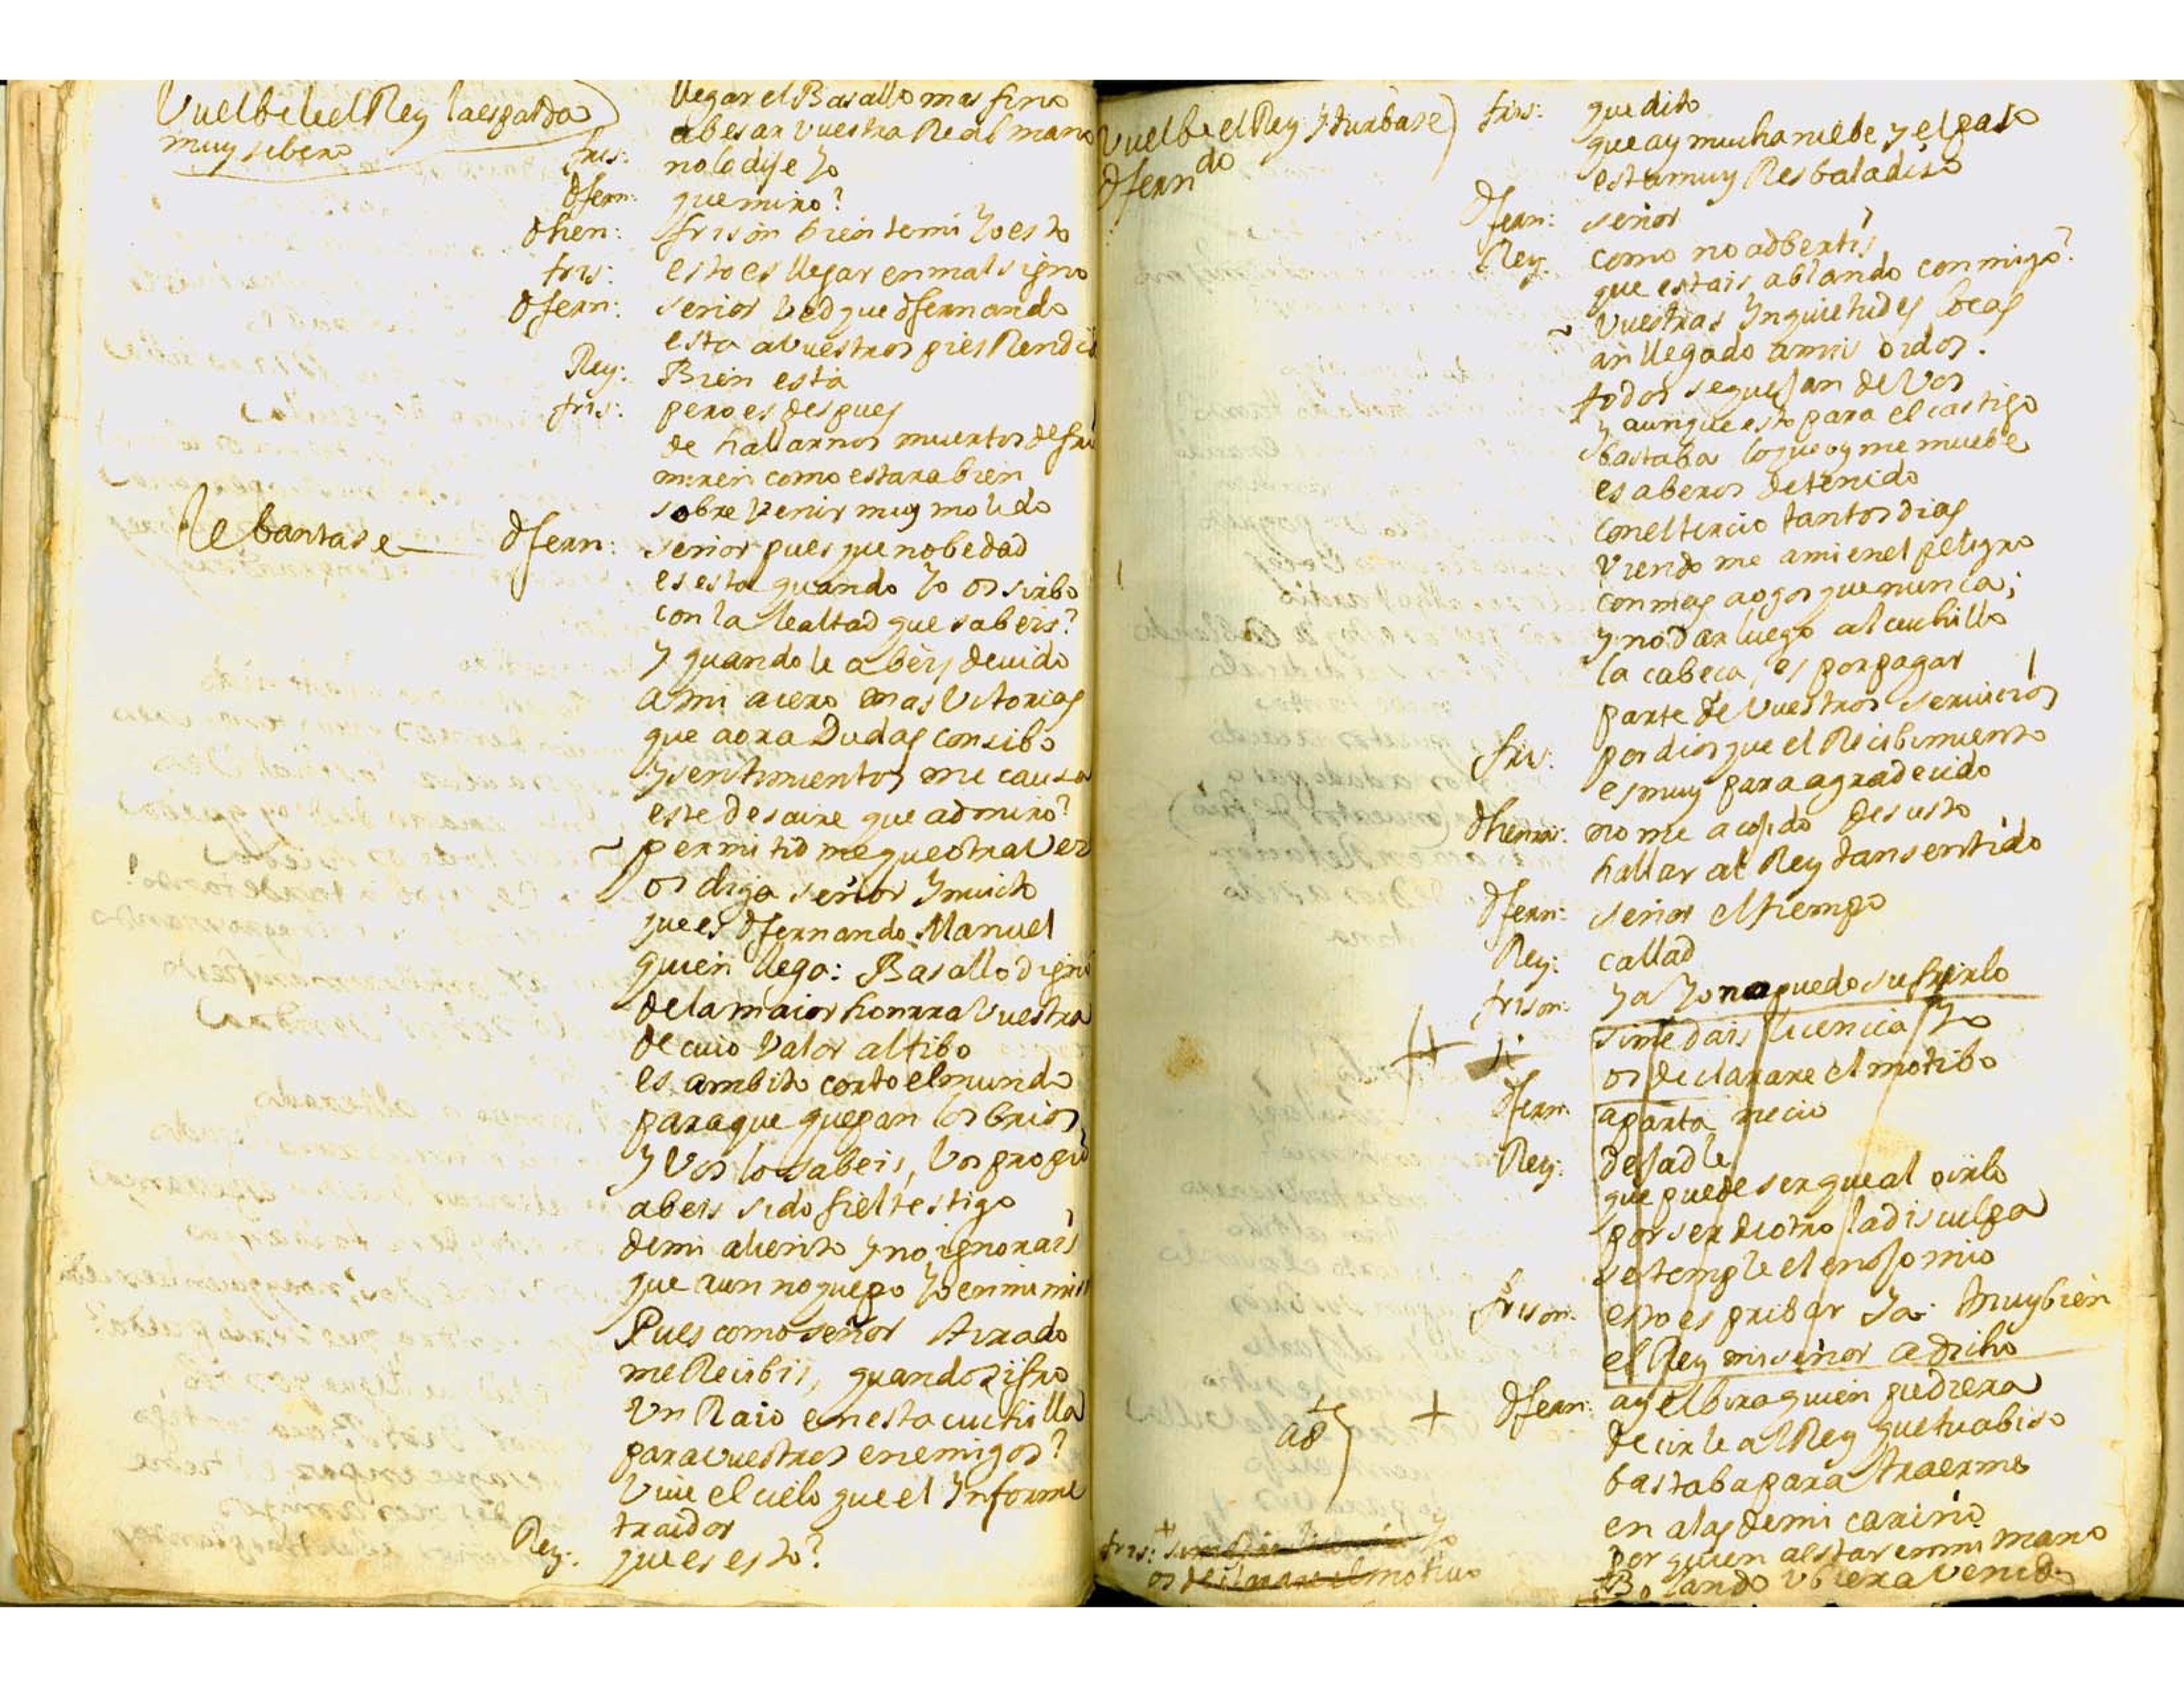 Vuelbele el Rey la espalda
muy sebero
llegar el Basallo mas fino
a besar vuestra Real mano
fris: no lo dije yo
Dfern: que miro?
Dhen: frison bien temi yo esto
fris: esto es llegar en mal signo
Dfern: señor ved que Dfernando
esta a vuestros pies Rendi
Rey: Bien esta
fris: pero es despues
de hallarnos muertos de fri
miren como estara bien
sobre venir muy molido
lebantase
Dfern: señor pues que nobedad
es esta quando yo os sirbo
con la lealtad que sabeis?
y quando le abeis deuido
a mi acero mas vitorias
que aora Dudas consibo
y sentimientos me causa
este desaire que admiro?
permitid me que otra vez
os diga señor Inuicto
que es Dfernando Manuel
quien llega: Basallo digno
de la maior honrra vuestra
de cuio valor altibo
es ambito corto el mundo
para que quepan los brios
y vos lo sabeis, vos propio
abeis sido fiel testigo
de mi aliento y no ignorais
que aun no quepo yo en mi mis
Pues como señor Airado
me Recibis, quando zifro
vn Raio en esta cuchilla
para vuestros enemigos?
viue el cielo que el Informe
traidor
Rey: que es esto?
Vuelbe el Rey y turbase
Dfern do
fris: quedito
que ay mucha niebe y el paso
esta muy Resbaladiso
Dfern: señor
Rey: como no adbertis
que estais ablando conmigo?
vuestras Inquietudes locas
an llegado a mis oidos.
todos se quejan de vos
y aunque esto para el castigo
bastaba lo que oy me muebe
es aberos detenido
con el tercio tantos dias
viendo me a mi en el peligro
con mas aogos que nunca;
y no dar luego al cuchillo
la cabeca, es por pagar
parte de vuestros seruicios
fris: por dios que el Recibimiento
es muy para agradecido
Dhenrri: no me a cojido de susto
hallar al Rey tan sentido
Dfern: señor el tiempo
Rey: callad
frison: ya yo no puedo sufrirlo
si me dais licencia yo
os declarare el motibo
Dfern: aparta necio
Rey: dejadle
que puede ser que al oirlo
por ser de otro la disculpa
se temple el enojo mio
frison: esto es pribar ya: muy bien
el Rey mi señor a dicho
Dfern: ay elbira quien pudiera
decirle al Rey que tu abiso
bastaba para traerme
en alas de mi cariño
por quien al estar en mi mano
Bolando vbiera venido
fris: si me dais licencia yo
os declarare el motiuo